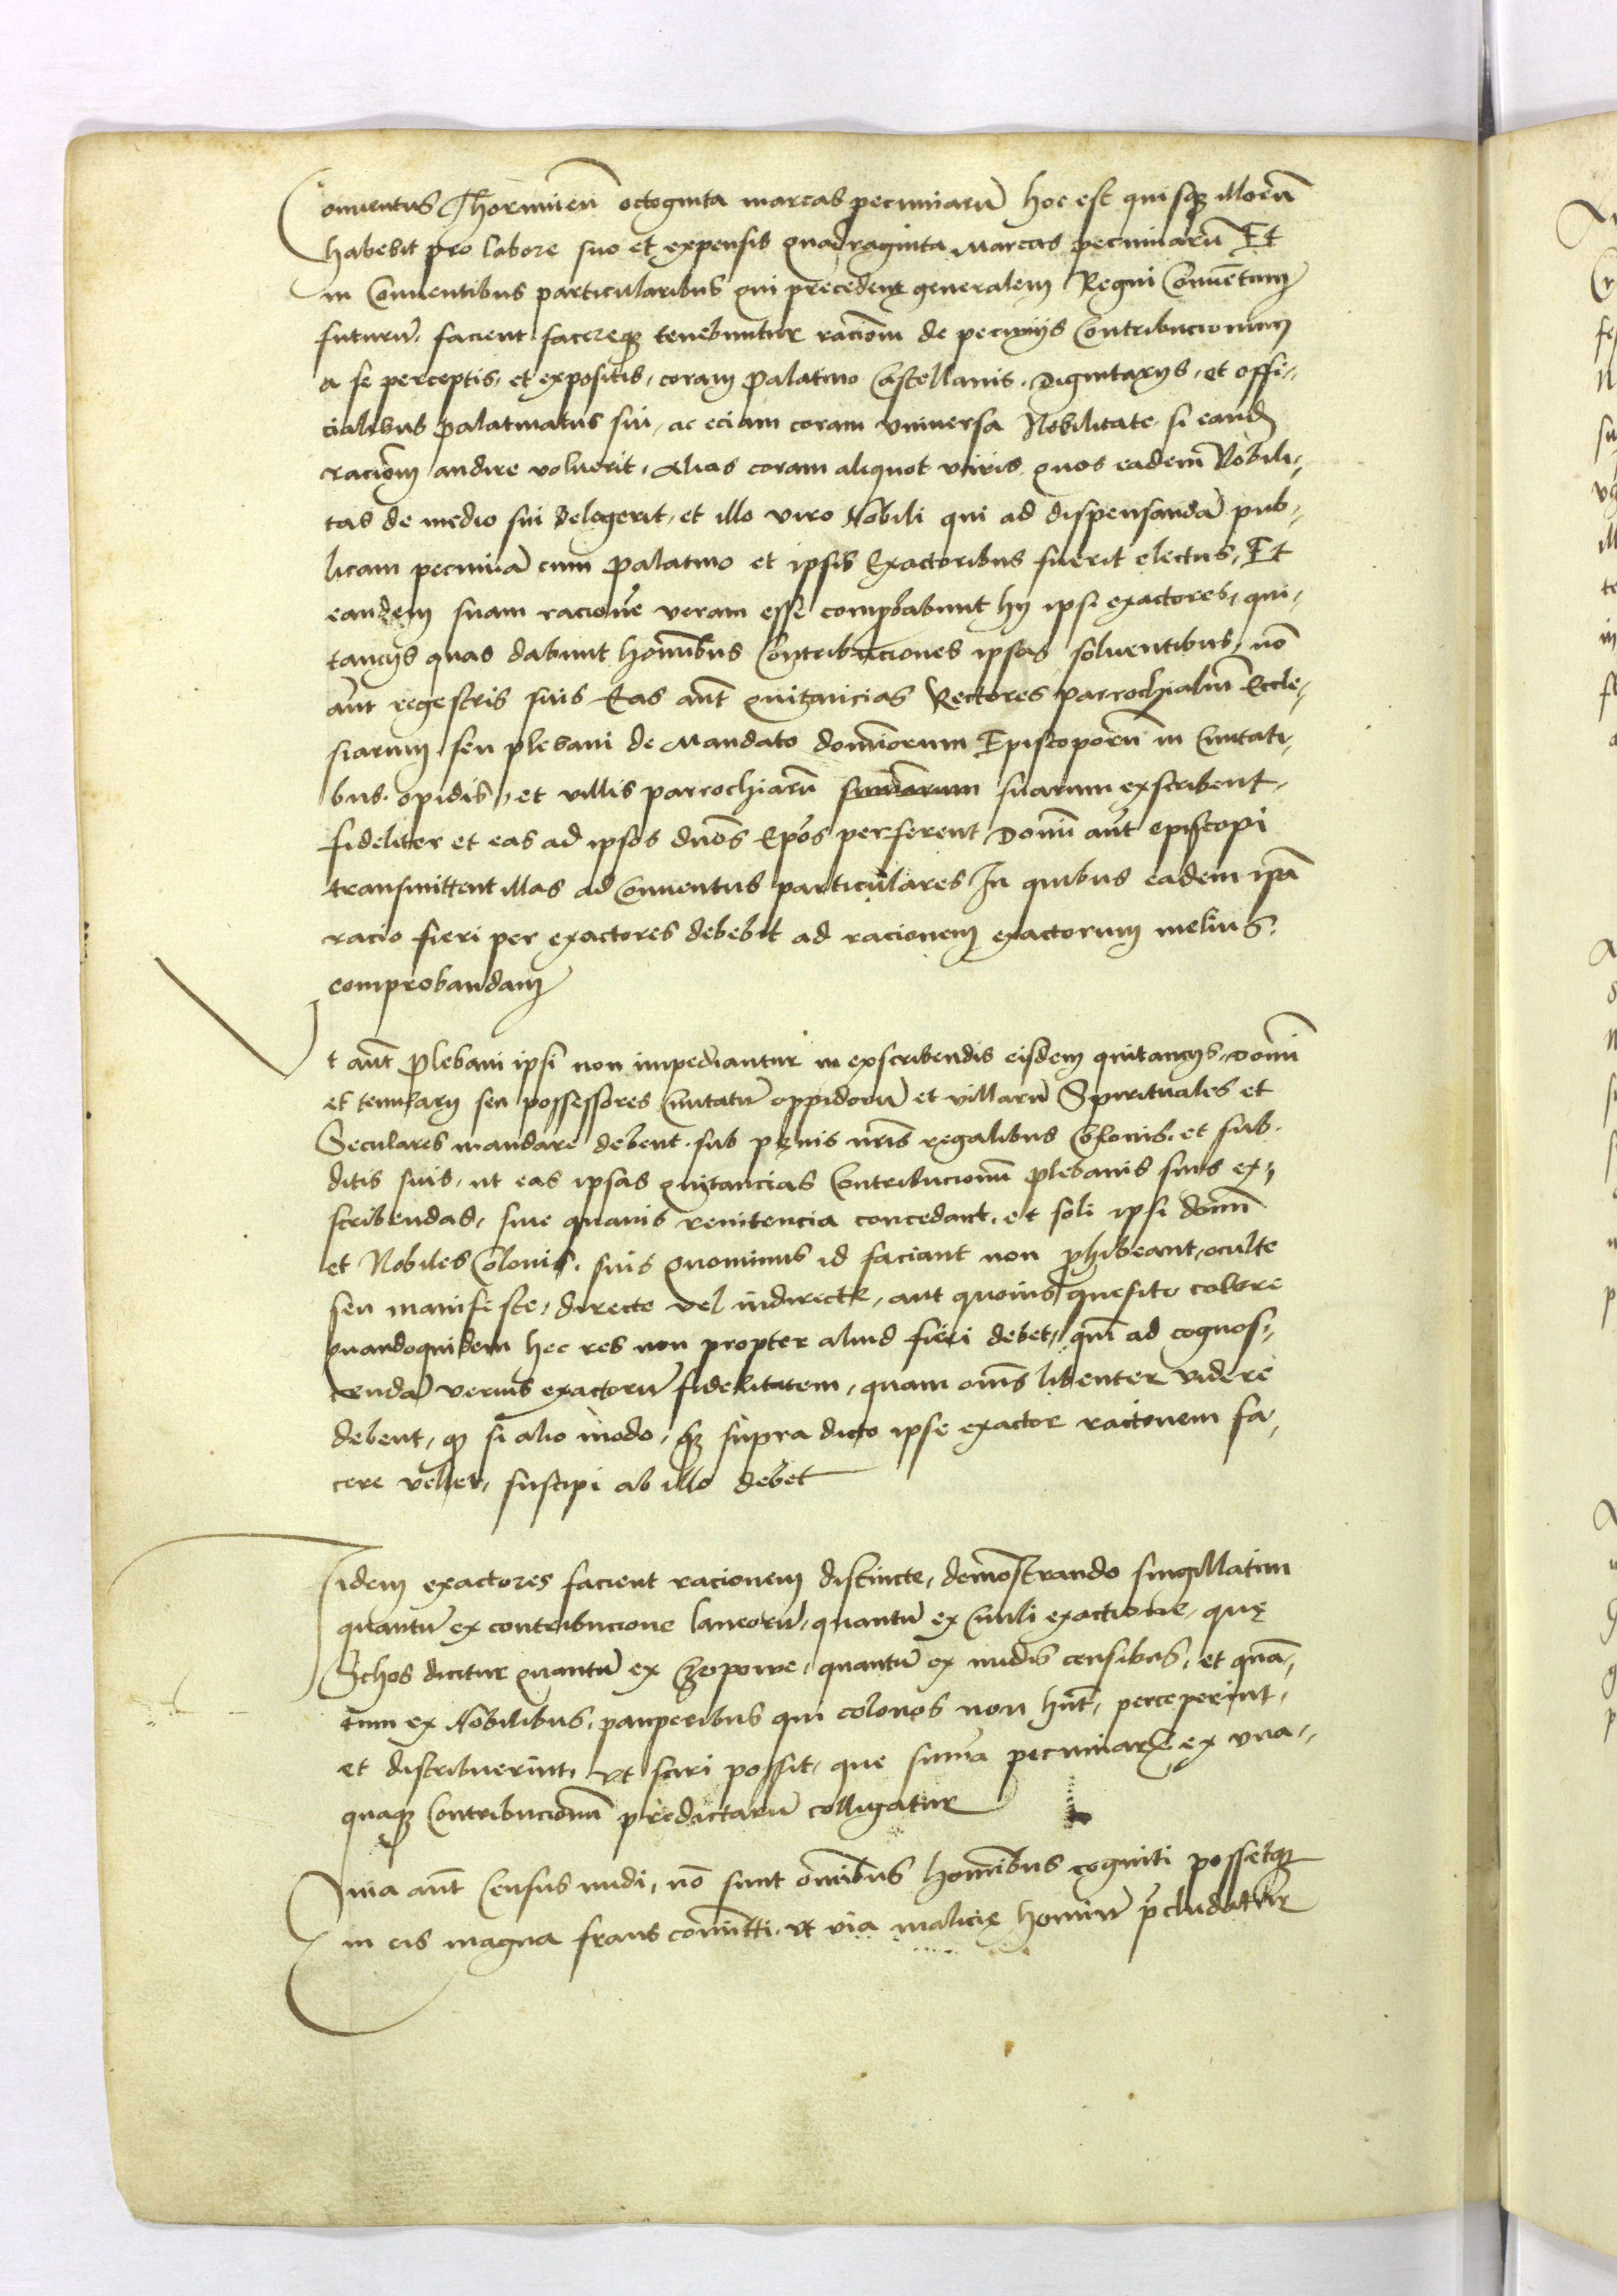 Conuentus Thorunień octoginta marcas pecuniarū hoc est quisqȝ illorū
habebit pro labore suo et expensis quadraginta Marcas pecuniarū Et
in Conuentibus particularibus qui precedent generalem Regni Conuētum
futurū, facient facereqȝ tenebuntur raciōm de pecunijs Contribucionum
a se perceptis, et expositis, coram Palatino Castellanis, Dignitarijs, et offi-
cialibus Palatinatus sui, ac eciam coram vniuersa Nobilitate, si eandē
raciōm audire voluerit, Alias coram aliquot viris, quos eadem Nobili-
tas de medio sui delegerit, et illo viro Nobili qui ad dispensandā pub-
licam pecuniā cum Palatino et ipsis Exactoribus fuerit electus, Et
eandem suam racionē veram esse comprobabunt hij ipsi exactores, qui-
tancijs quas dabunt hominibus Contribuciones ipsas soluentibus, nō
aūt regestris suis Eas aūt quitancias Rectores parrochialiū Eccle-
siarum, seu plebani de Mandato dominorum Episcoporū in Ciuitati-
bus, opidis, et villis parrochiarū suarum exscribent,
fideliter et eas ad ipsos dnōs Epōs perferent Domini aūt episcopi
transmittent illas ad Conuentus particulares In quibus eadem ipā
racio fieri per exactores debebit ad racionem exactorum melius,
comprobandam
Vt aūt Plebani ipsi non impediantur in exscribendis eisdem quitancijs, Domini
et tenutarij seu possessores Ciuitatū oppidorū et villarū Spirituales et
Seculares mandare debent, sub penis nrīs regalibus Colonis, et sub-
ditis suis, ut eas ipsas quitancias Contribucionū plebanis suis ex-
scribendas, sine quauis renitencia concedant, et soli ipsi domini
et Nobiles Colonis, suis quominus id faciant non prohibeant, oculte
seu manifeste, directe vel indirecte, aut quouis quesito colore
quandoquidem hec res non propter aliud fieri debet, quā ad cognos-
cendā verius exactorū fidelitatem, quam omēs libenter videre
debent, qȝ si alio modo, qȝ supra dicto ipse exactor racionem fa-
cere vellet, suscipi ab illo debet
Iidem exactores facient racionem distincte, demōstrando singillatim
quantū ex contribucione laneorū, quantū ex Ciuili exactione, quę
Schos dicitur quantū ex Czopowe, quantū ex nudis censibus, et quā-
tum ex Nobilibus, pauperibus qui colonos non hn̄t, perceperint,
et distribuerint, vt sciri possit, que summa pecuniarū ex vna-
quaqȝ Contribucionū predictarū colligatur
Quia aūt Census nudi, nō sunt omnibus hominibus cogniti possetqȝ
in eis magna fraus committi, vt via malicię hominū precludatur